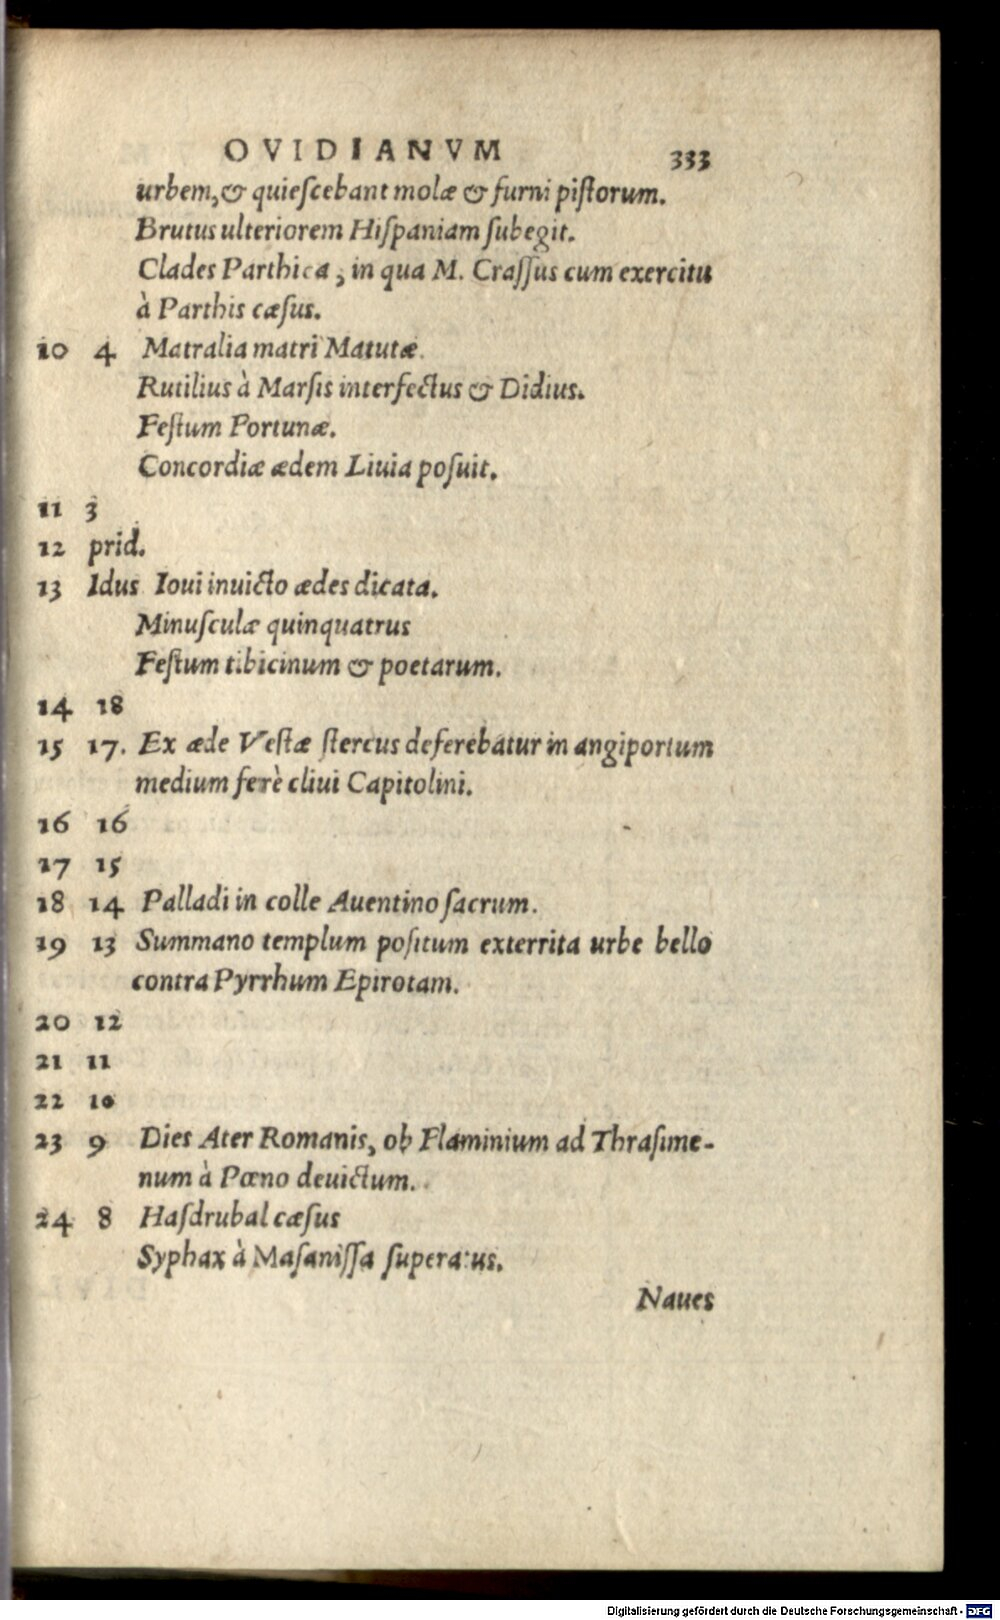 OVIDIANVM 333
urbem, & quieſcebant molæ & furni piſtorum.
Brutus ulteriorem Hiſpaniam ſubegit.
Clades Parthica, in qua M. Craſſus cum exercitu
à Parthis cæſus.
10 4 Matralia matri Matutæ.
Rutilius à Marſis interfectus & Didius.
Feſtum Fortunæ.
Concordiæ ædem Liuia poſuit.
11 3
12 prid.
13 Idus Ioui inuicto ædes dicata.
Minuſculæ quinquatrus
Feſtum tibicinum & poetarum.
14 18
15 17. Ex æde Veſtæ ſtercus deferebatur in angiportum
medium ferè cliui Capitolini.
16 16
17 15
18 14 Palladi in colle Auentino ſacrum.
19 13 Summano templum poſitum exterrita urbe bello
contra Pyrrhum Epirotam.
20 12
21 11
22 10
23 9 Dies Ater Romanis, ob Flaminium ad Thraſime-
num à Pœno deuictum.
24 8 Haſdrubal cæſus
Syphax à Maſaniſſa ſuperatus.
Naues
Digitalisierung gefördert durch die Deutsche Forschungsgemeinschaft - DFG